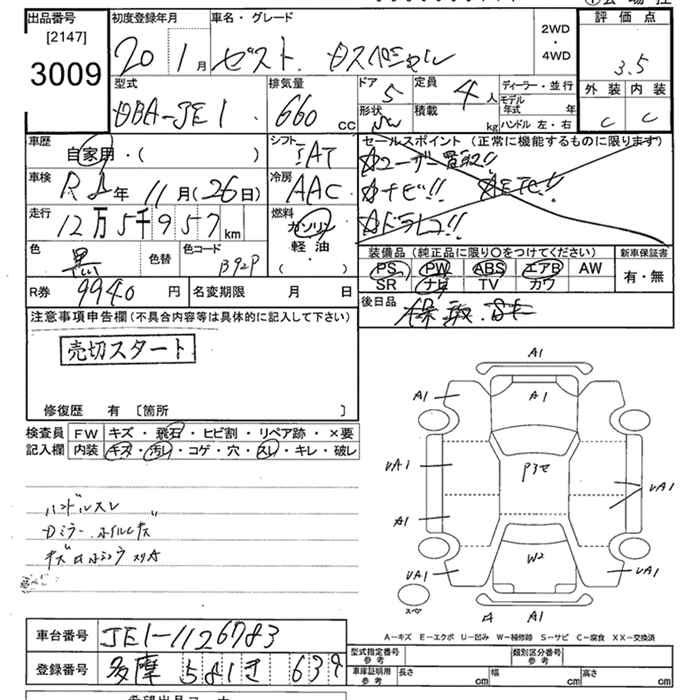 出品番号 初度登録年月 車名・グレード 評価点
[2147]
3009
20 1月 ゼスト Dスペシャル
2WD
・
4WD
3.5
型式 排気量 ドア 定員 ディーラー・並行 外装 内装
DBA-JE1 660cc 5 4人
モデル年式 年
形状 積載 kg ハンドル 左・右
C C
車歴 自家用・( ) シフト IAT
セールスポイント (正常に機能するものに限ります)
☆ユーザー買取!!
☆ナビ!! ☆ETC!!
☆ドラレコ!!
車検 R2年11月(26日) 冷房 AAC
走行 12万5千957km 燃料 ガソリン
軽油
( )
色 黒 色替 色コード B92P
装備品 (純正品に限り○をつけてください) 新車保証書
PS PW ABS エアB AW
SR ナビ TV カワ
有・無
R券 9940円 名変期限 月 日
後日品
注意事項申告欄 (不具合内容等は具体的に記入して下さい)
売切スタート
修復歴 有 [箇所 ]
検査員 FW キズ・飛石・ヒビ割・リペア跡・×要
記入欄 内装 キズ・汚レ・コゲ・穴・スレ・キレ・破レ
ハンドルスレ
Dミラー ホイルキズ
A1
A1 A1 A1
UA1 P3セ UA1
A1
W2
UA1 UA1
スペア
A1
A-キズ E-エクボ U-凹み W-補修跡 S-サビ C-腐食 XX-交換済
車台番号 JE1-1126783
登録番号 多摩 581 き 639
型式指定番号 参考 類別区分番号 参考
車庫証明用 参考 長さ cm 幅 cm 高さ cm